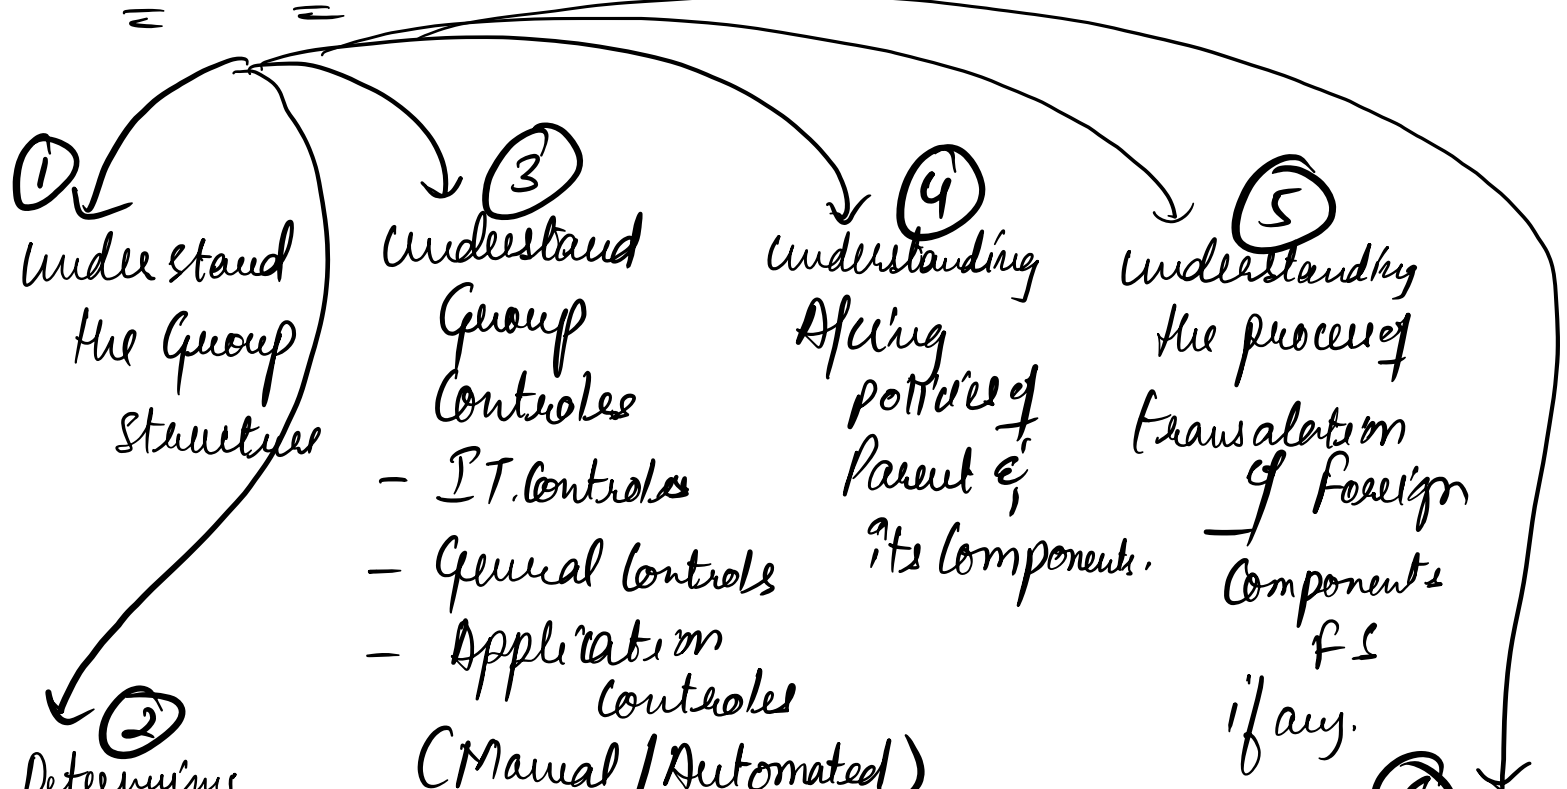 ①
Understand
the Group
Structure
③
Understand
Group
Controles
- I T. Controles
- General Controls
- Application
Controles
(Manual / Automated)
④
Understanding
A/cing
policies of
Parent &
its Components.
⑤
Understanding
the process of
transalation
of Foreign
Components
FS
if any.
②
Determine